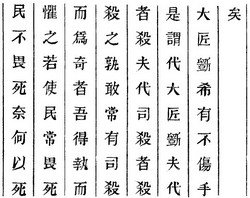 民不畏死奈何以死
懼之若使民常畏死
而爲奇者吾得執而
殺之孰敢常有司殺
者殺夫代司殺者殺
是謂代大匠斲夫代
大匠斲希有不傷手
矣